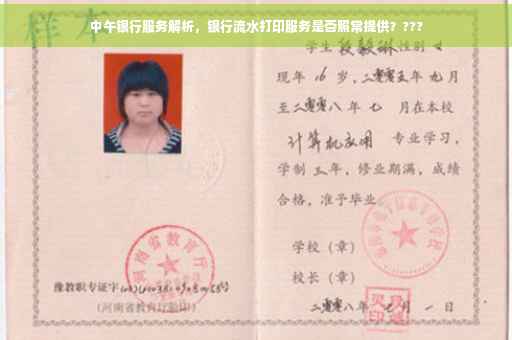 中午银行服务解析，银行流水打印服务是否照常提供？???
样本
学生段毅琳性别女
现年16岁，二零零五年九月
至二零零八年七月在本校
计算机应用专业学习，
学制三年，修业期满，成绩
合格，准予毕业
学校（章）
校长（章）
二零零八年七月一日
河南省教育厅
豫教职专证字
（河南省教育厅验印）